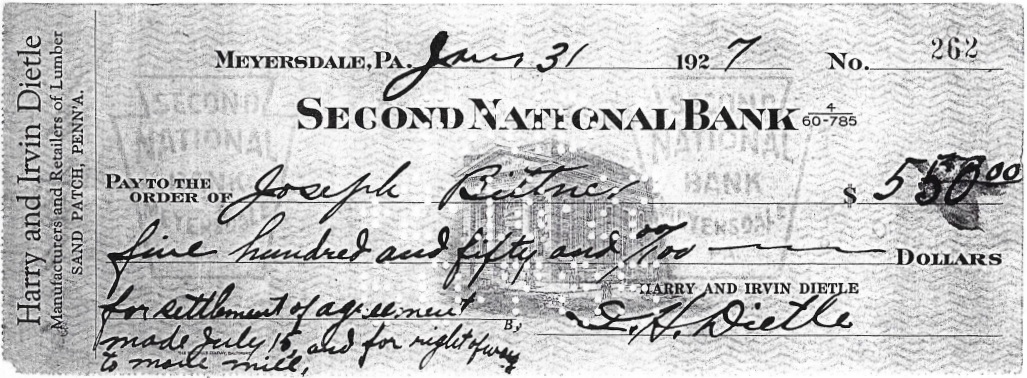 Harry and Irvin Dietle
Manufacturers and Retailers of Lumber
SAND PATCH, PENN'A.
MEYERSDALE, PA. Jany 31 1927 No. 262
SECOND NATIONAL BANK 4/60-785
PAY TO THE ORDER OF Joseph Bittner $ 550 00
five hundred and fifty and 00/100 DOLLARS
HARRY AND IRVIN DIETLE
for settlement of agreement
By I. H. Dietle
made July 15, and for right of way
to move mill,
SECOND NATIONAL BANK MEYERSDALE